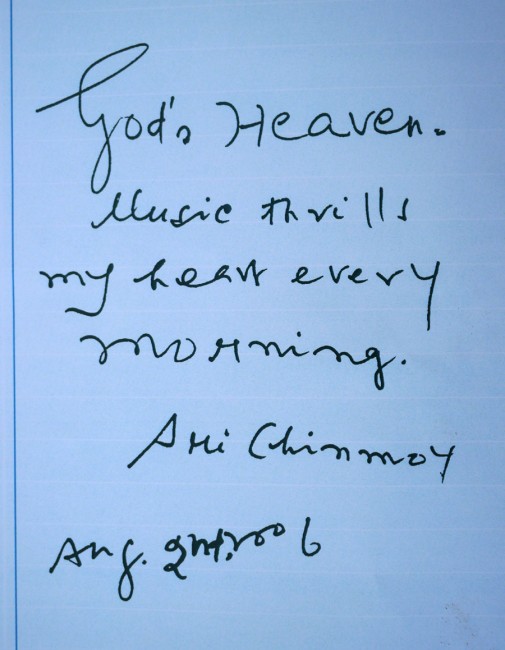 God's Heaven-
Music thrills
my heart every
morning.
Sri Chinmoy
Aug. 2nd, 2006